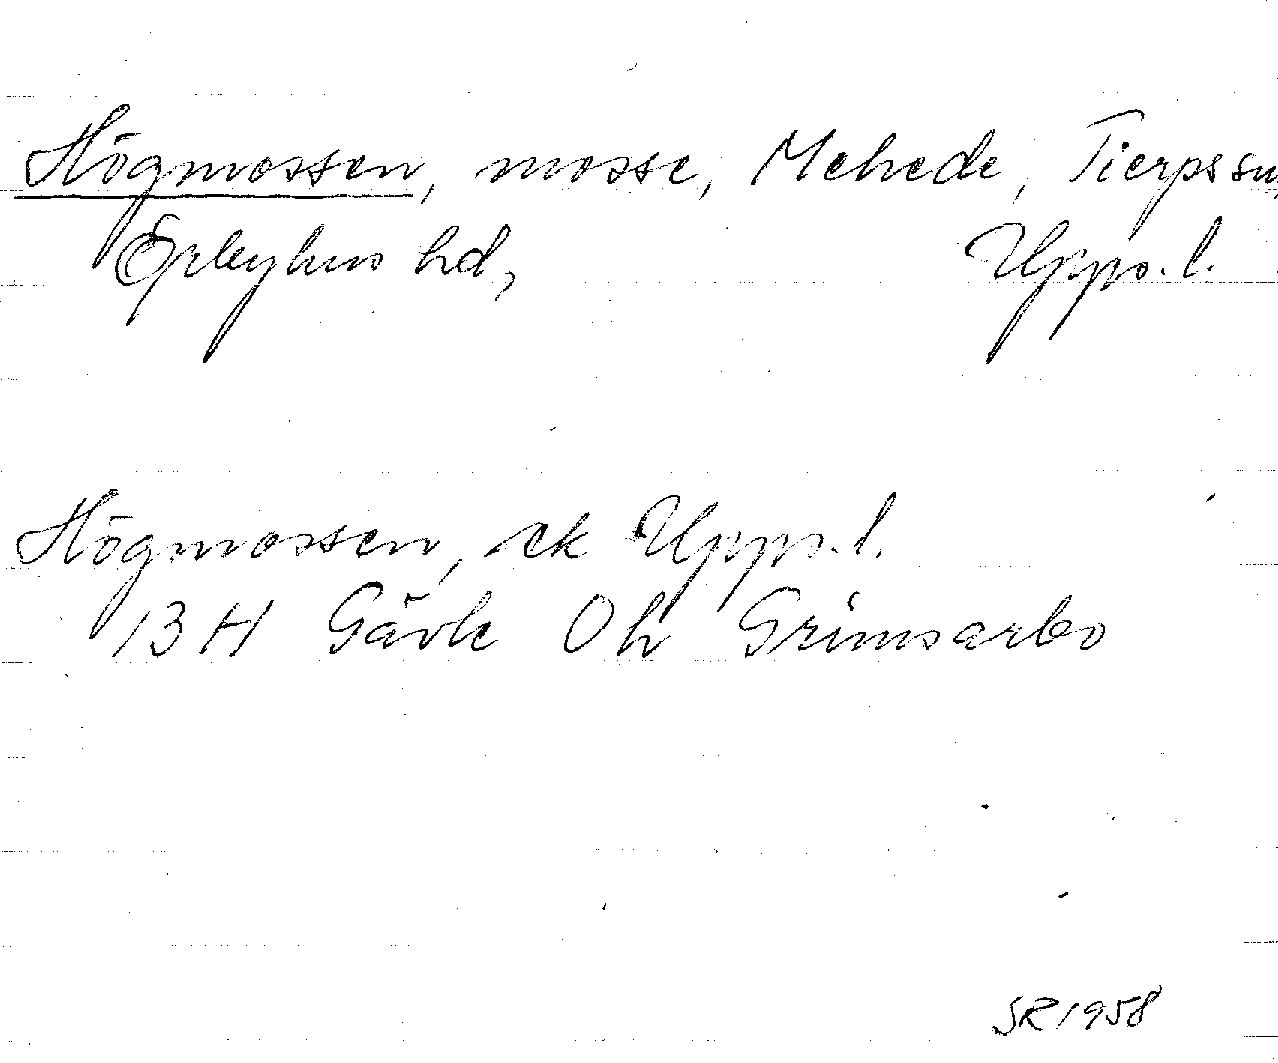 Högmossen, mosse, Mehede, Tierps sn,
Örbyhus hd, Upps. l.
Högmossen, ek Upps. l.
13 H Gävle 0h Grimsarbo
SR 1958